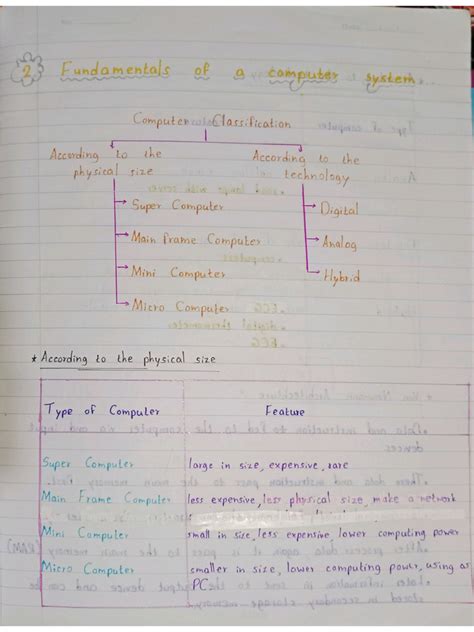 2 Fundamentals of a computer system
Computer Classification
According to the physical size
According to the technology
Super Computer
Main frame Computer
Mini Computer
Micro Computer
Digital
Analog
Hybrid
* According to the physical size
Type of Computer Feature
Super Computer large in size, expensive, rare
Main Frame Computer less expensive, less physical size, make a network
Mini Computer small in size, less expensive, lower computing power
Micro Computer smaller in size, lower computing power, using as
PC